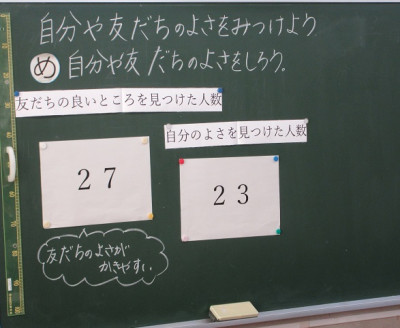 自分や友だちのよさをみつけよう
め 自分や友だちのよさをしろう。
友だちの良いところを見つけた人数
27
友だちのよさが
かきやすい
自分のよさを見つけた人数
23